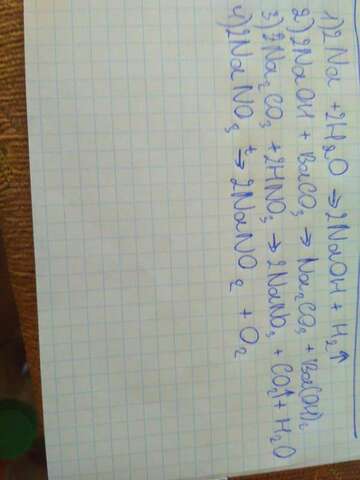 1) 2Na + 2H₂O → 2NaOH + H₂↑
2) 2NaOH + BaCO₃ → Na₂CO₃ + Ba(OH)₂
3) 2Na₂CO₃ + 2HNO₃ → 2NaNO₃ + CO₂↑ + H₂O
4) 2NaNO₃ t→ 2NaNO₂ + O₂